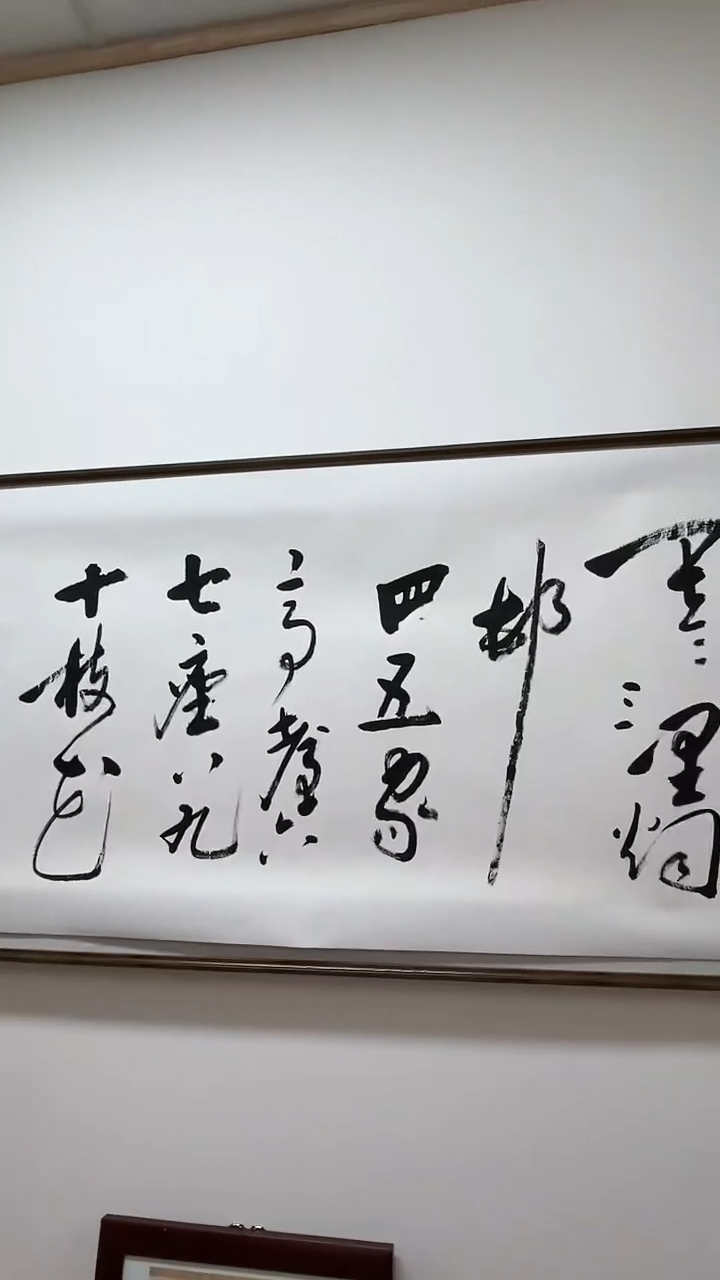 一去二三里烟
邨
四五家
亭臺六
七座八九
十枝花